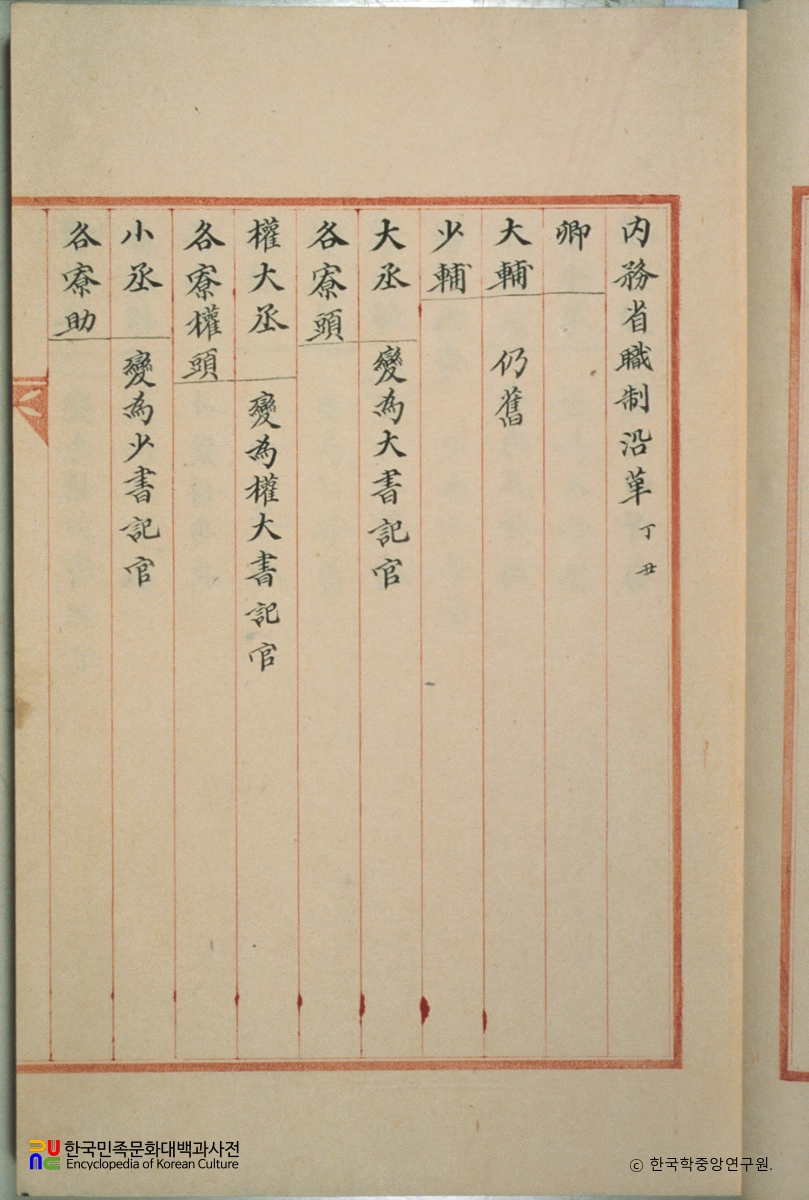 内務省職制沿革 丁丑
卿
大輔 仍舊
少輔
大丞 變為大書記官
各寮頭
權大丞 變為權大書記官
各寮權頭
小丞 變為少書記官
各寮助
한국민족문화대백과사전
Encyclopedia of Korean Culture
ⓒ 한국학중앙연구원.